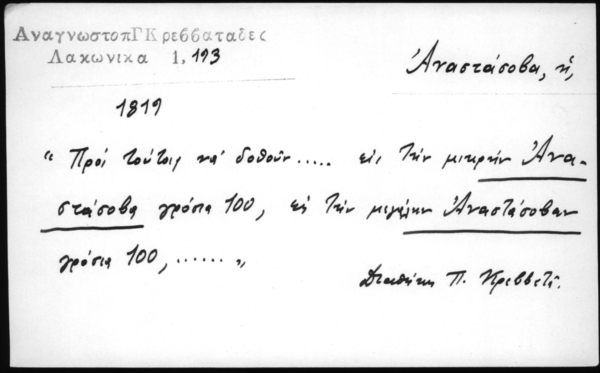 ΑναγνωστοπΓΚρεββαταδες
Λακωνικα 1, 193
Ἀναστάσοβα, ἡ,
1819
" Πρός τούτοις νά δοθοῦν ..... εἰς τήν μικρήν Ἀνα-
στάσοβα γρόσια 100, εἰς τήν μεγάλην Ἀναστάσοβαν
γρόσια 100, ...... "
Διαθήκη Π. Κρεββατᾶ.